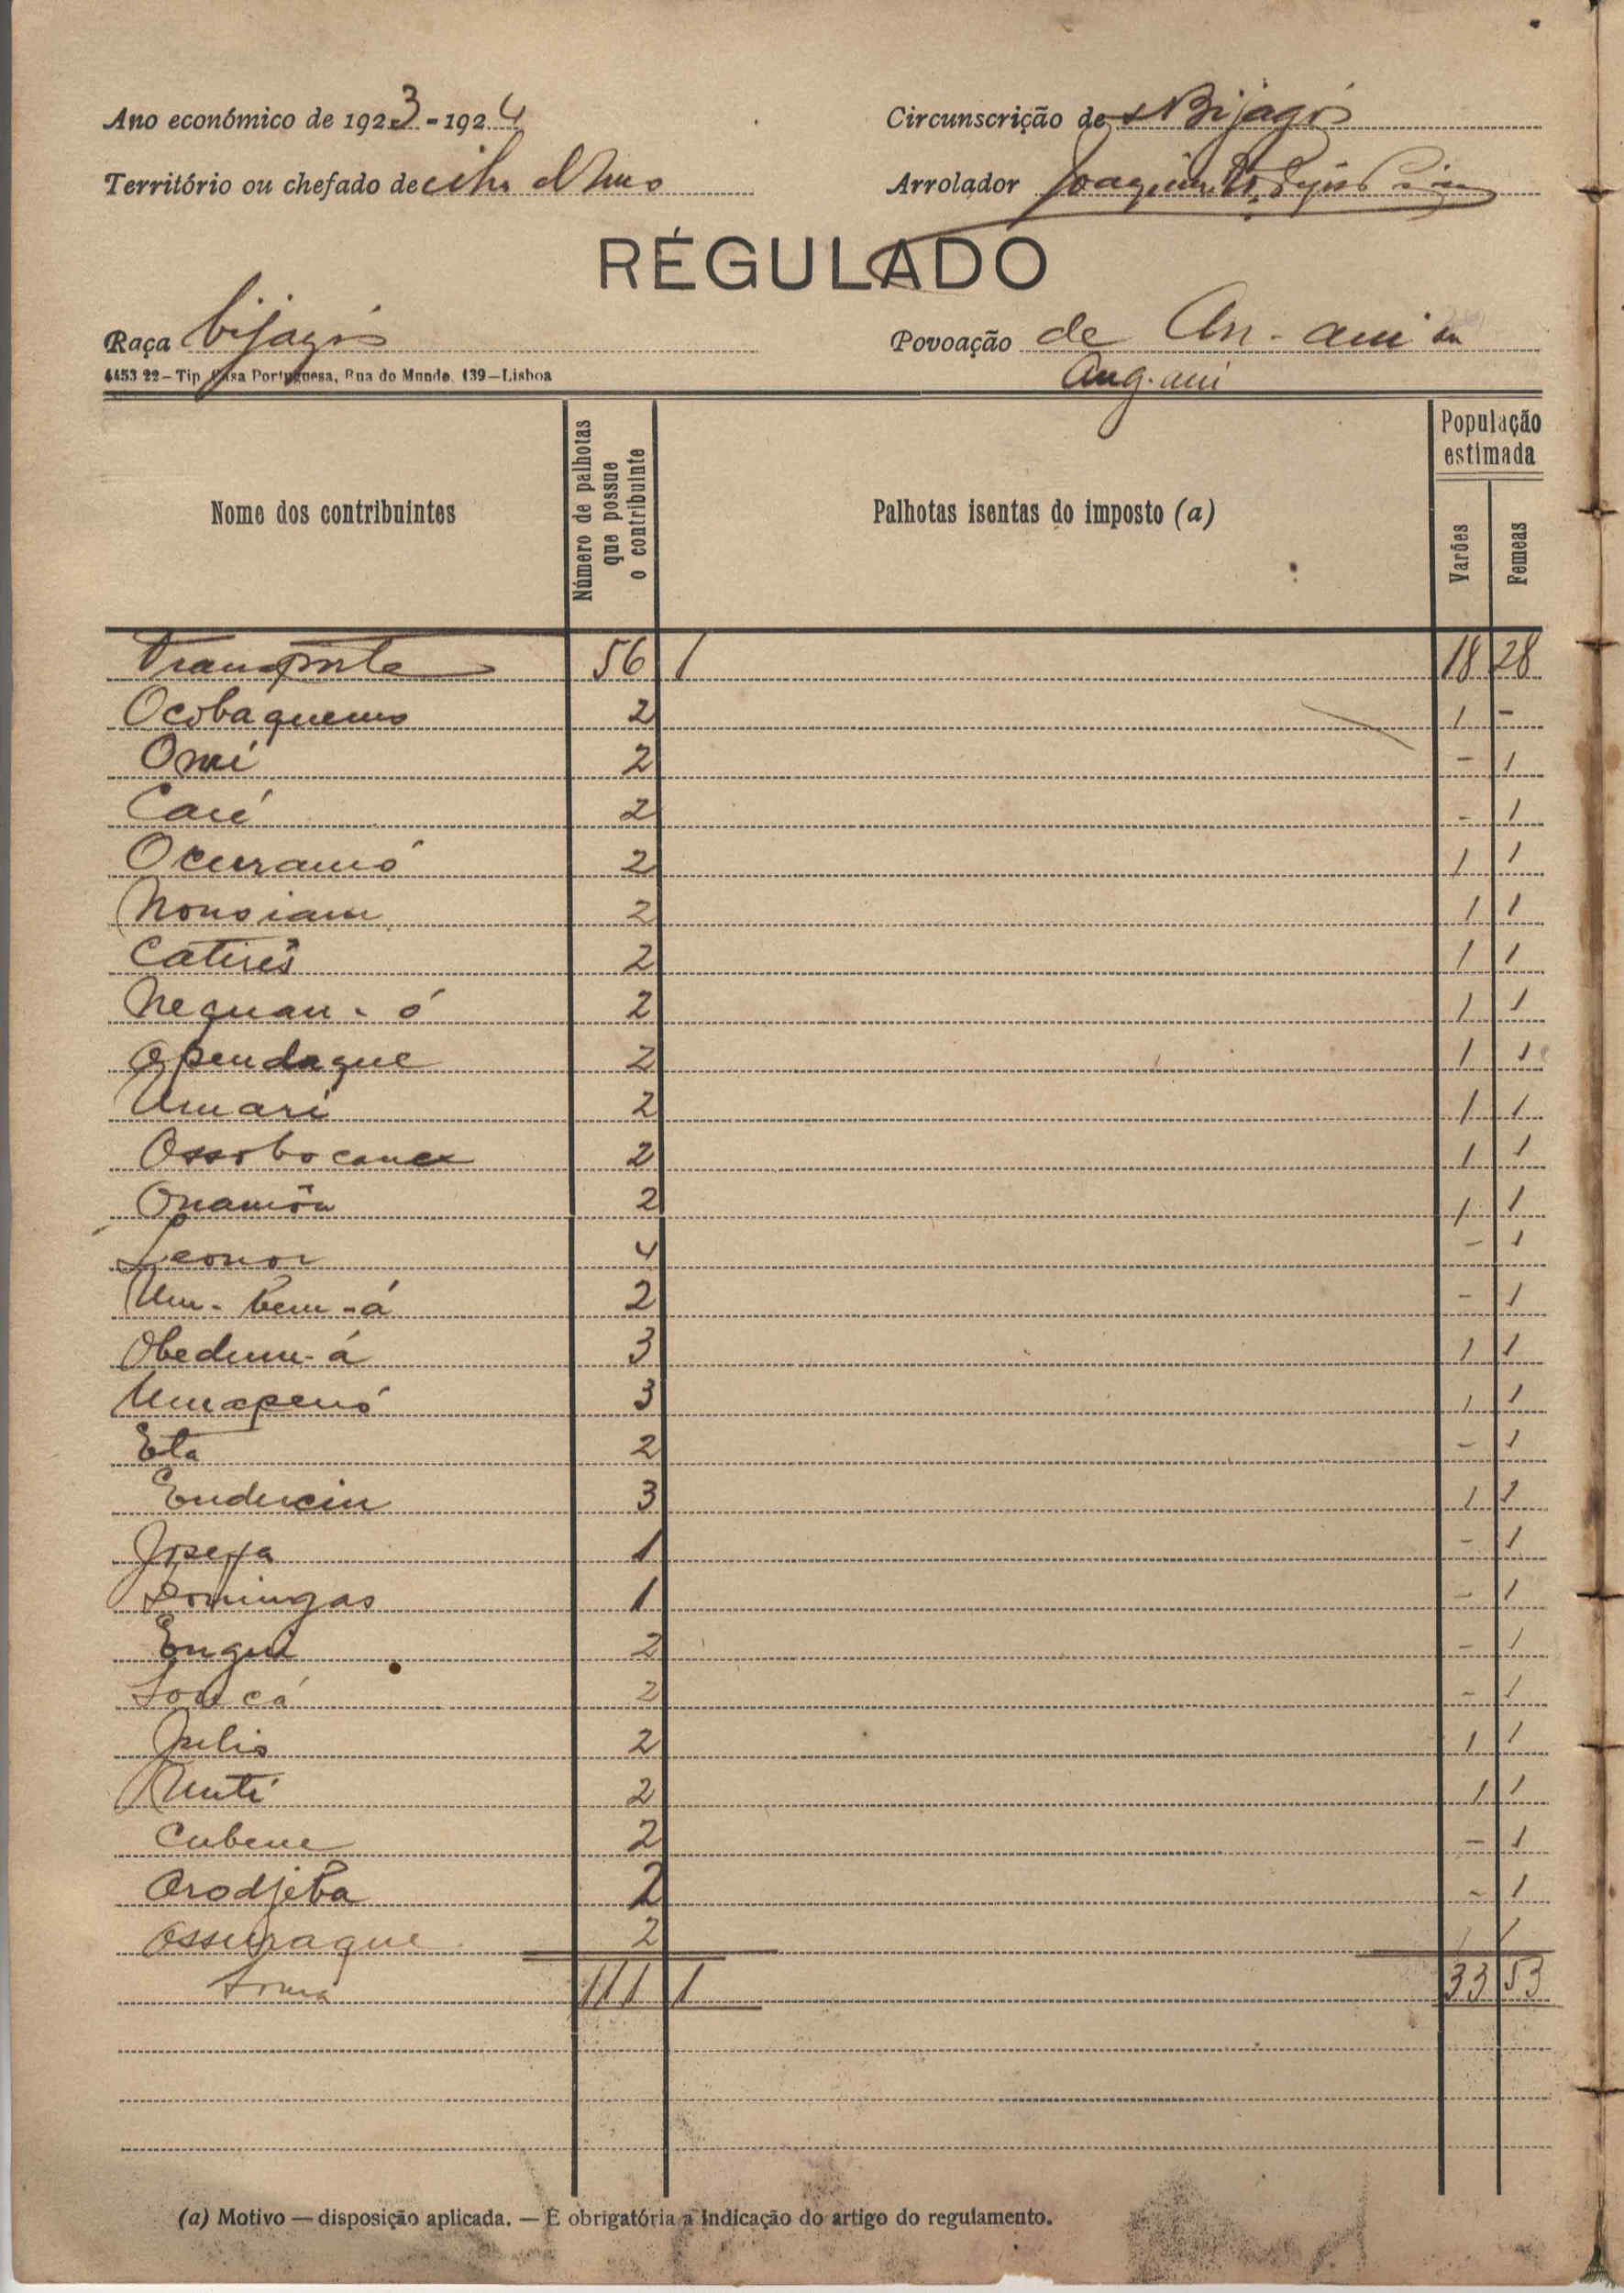 Ano económico de 1923-1924
Circunscrição de Bijagós
Território ou chefado de
Arrolador Joaquim
RÉGULADO
Raça bijagós
Povoação de An-ami ou
Ang-ami
4453 22—Tip Casa Portuguesa, Rua do Mundo, 139—Lisboa
Nome dos contribuintes
Número de palhotas que possue o contribuinte
Palhotas isentas do imposto (a)
População estimada
Varões
Femeas
Transporte 56 1 18 28
Ocobaquemo 2 1 -
Omi 2 - 1
Caré 2 - 1
Ocuramó 2 1 1
Nonoiam 2 1 1
Catirés 2 1 1
Nequan-ó 2 1 1
Opendaque 2 1 1
Umari 2 1 1
Ossobocane 2 1 1
Onamôn 2 1 1
Leonor 4 - 1
Um-bem-á 2 - 1
Obedum-á 3 1 1
Umapenó 3 1 1
Eta 2 - 1
Enducin 3 1 1
Josefa 1 - 1
Domingas 1 - 1
Engui 2 - 1
2 - 1
Julio 2 1 1
Unti 2 1 1
Cubene 2 - 1
Orodjeba 2 - 1
Ossuraque 2 1 1
Soma 111 1 33 53
(a) Motivo — disposição aplicada. — É obrigatória a indicação do artigo do regulamento.